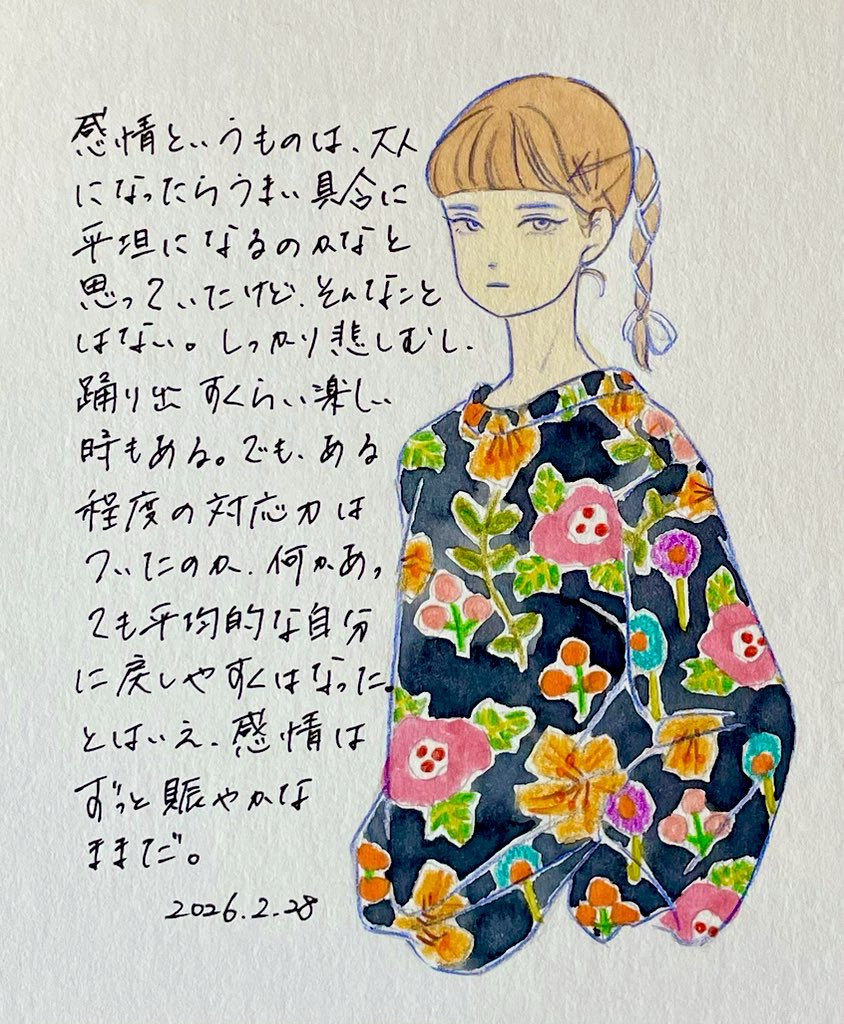 感情というものは、大人
になったらうまい具合に
平坦になるのかなと
思っていたけど、そんなこと
はない。しっかり悲しむし、
踊り出すくらい楽しい
時もある。でも、ある
程度の対応力は
ついたのか、何かあっ
ても平均的な自分
に戻しやすくはなった。
とはいえ、感情は
ずっと賑やかな
ままだ。
2026.2.28